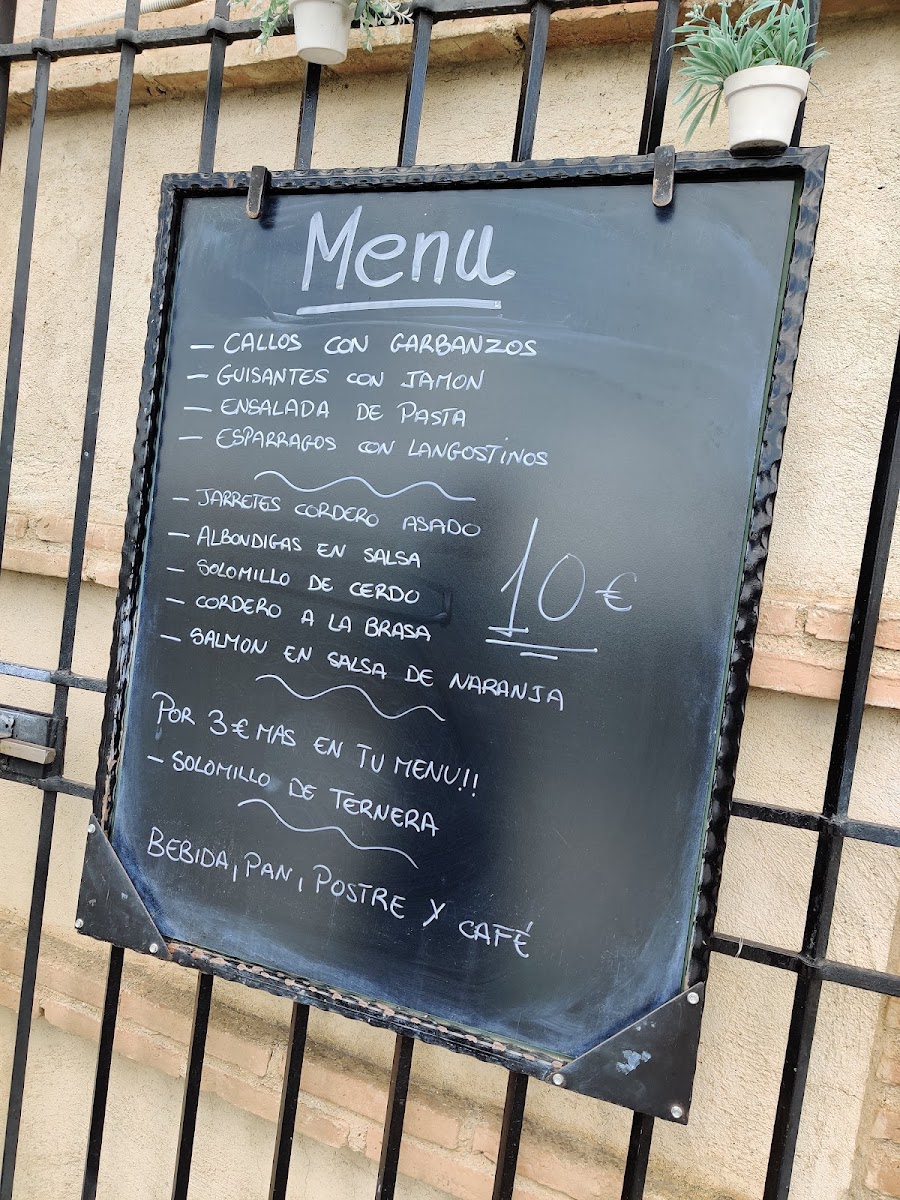 Menu
- CALLOS CON GARBANZOS
- GUISANTES CON JAMON
- ENSALADA DE PASTA
- ESPARRAGOS CON LANGOSTINOS
- JARRETES CORDERO ASADO
- ALBONDIGAS EN SALSA
- SOLOMILLO DE CERDO
- CORDERO A LA BRASA
- SALMON EN SALSA DE NARANJA
10€
POR 3€ MAS EN TU MENU!!
- SOLOMILLO DE TERNERA
BEBIDA, PAN, POSTRE Y CAFÉ